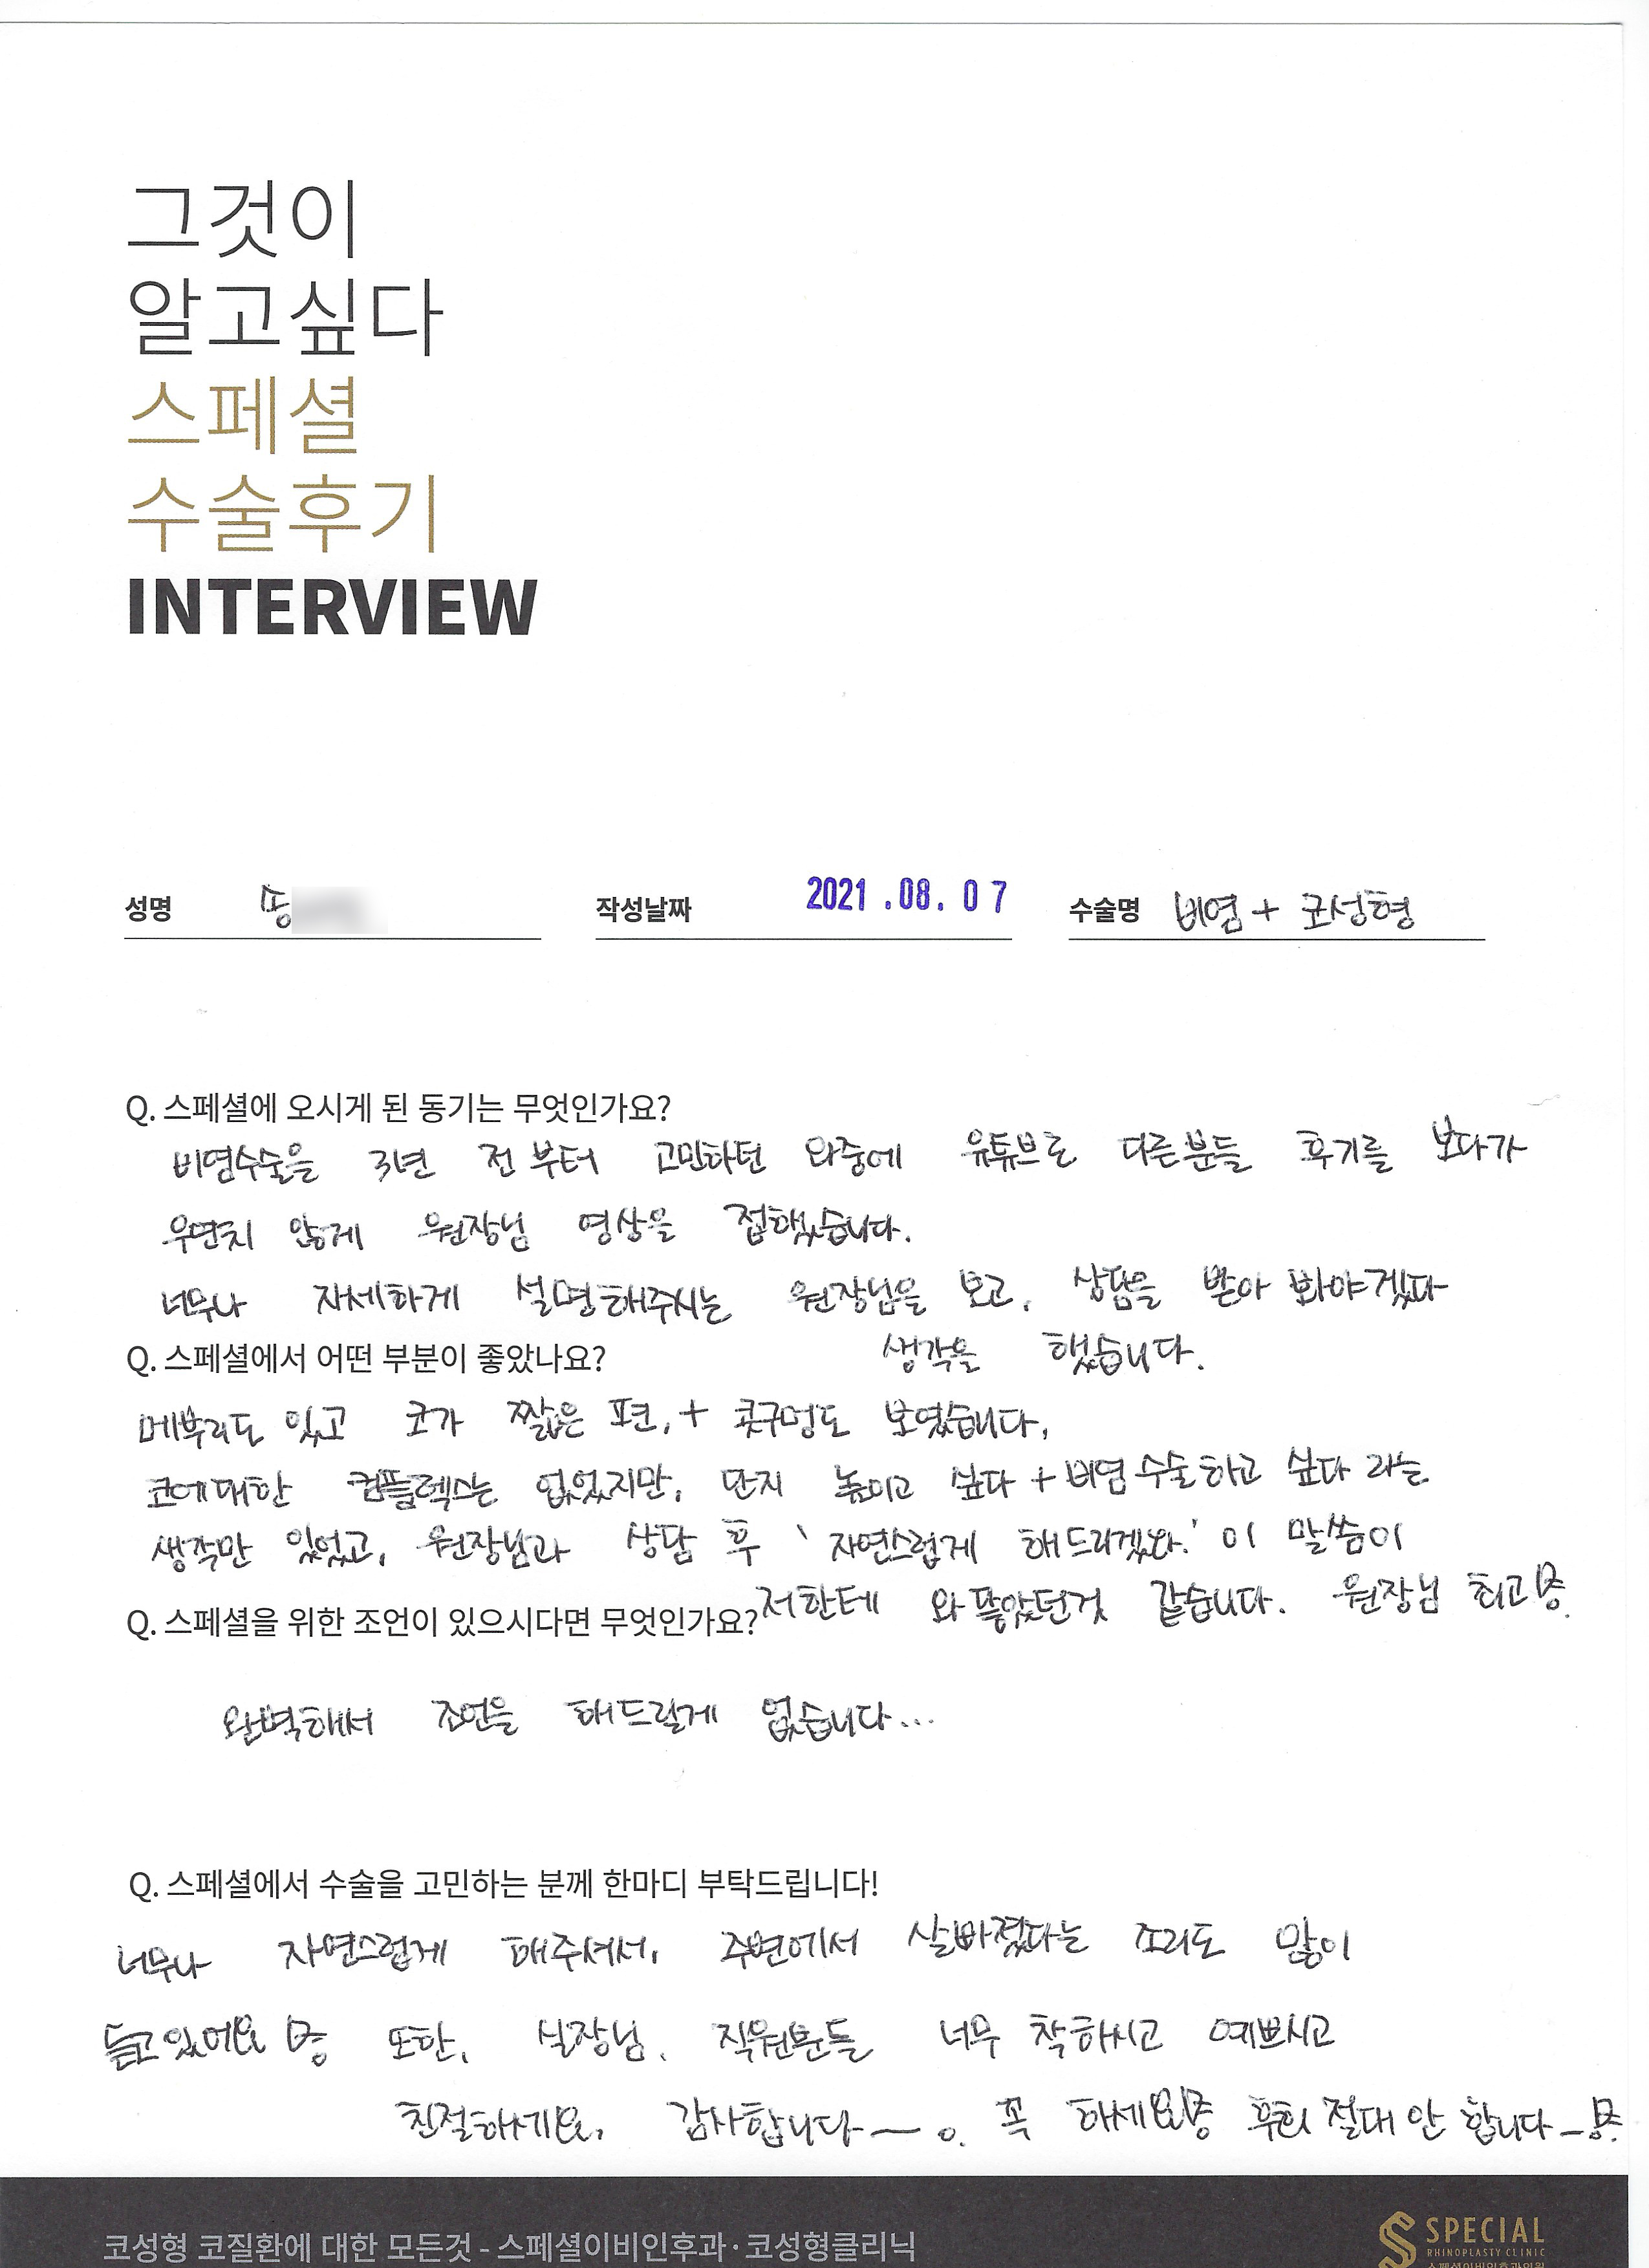 그것이
알고싶다
스페셜
수술후기
INTERVIEW
성명 송 작성날짜 2021.08.07 수술명 비염 + 코성형
Q. 스페셜에 오시게 된 동기는 무엇인가요?
비염수술을 3년 전 부터 고민하던 와중에 유튜브로 다른분들 후기를 보다가
우연치 않게 원장님 영상을 접했습니다.
너무나 자세하게 설명해주시는 원장님을 보고, 상담을 받아 봐야겠다
생각을 했습니다.
Q. 스페셜에서 어떤 부분이 좋았나요?
메부리도 있고 코가 짧은 편, + 콧구멍도 보였습니다,
코에대한 컴플렉스는 없었지만, 단지 높이고 싶다 + 비염수술하고 싶다 라는
생각만 있었고, 원장님과 상담 후 '자연스럽게 해드리겠다.' 이 말씀이
저한테 와 닿았던것 같습니다. 원장님 최고
Q. 스페셜을 위한 조언이 있으시다면 무엇인가요?
완벽해서 조언을 해드릴게 없습니다...
Q. 스페셜에서 수술을 고민하는 분께 한마디 부탁드립니다!
너무나 자연스럽게 해주셔서, 주변에서 살빠졌다는 소리도 많이
듣고있어요 또한, 실장님, 직원분들 너무 착하시고 예쁘시고
친절하세요, 감사합니다~. 꼭 하세요 후회 절대 안 합니다
코성형 코질환에 대한 모든것 - 스페셜이비인후과·코성형클리닉
SPECIAL
RHINOPLASTY CLINIC
스페셜이비인후과의원